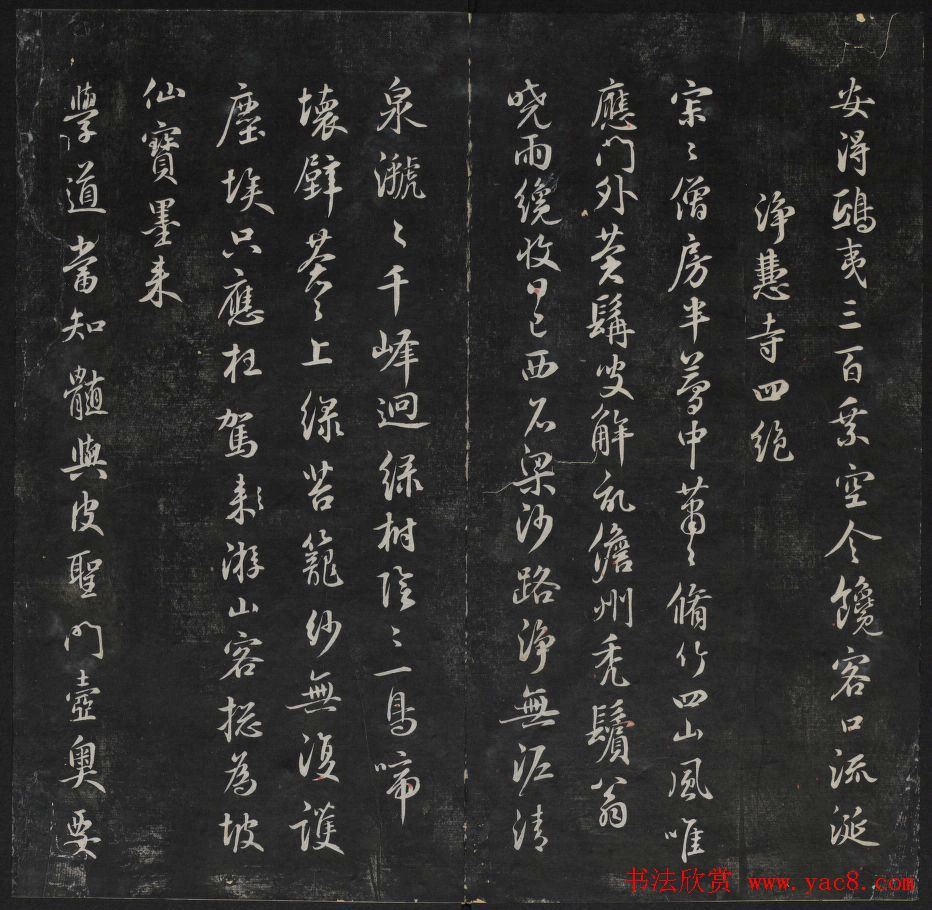 安得鴟夷三百乘空令饞客口流涎
淨慧寺四絕
寂〻僧房半夢中蕭〻脩竹四山風唯
應門外蒼髯叟解記儋州禿鬢翁
曉雨纔收日已西石梁沙路淨無泥清
泉㶁〻千峰迴綠樹陰〻一鳥啼
壞壁蒼〻上綠苔籠紗無復護
塵埃只應枉駕來游山客揔為坡
仙寶墨来
學道當知髓與皮聖門壼奧要
书法欣赏 www.yac8.com